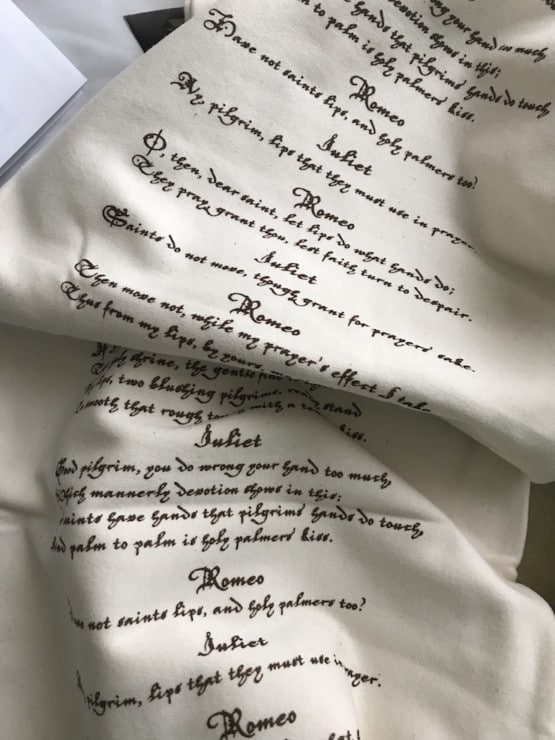 your hand too much
devotion shows in this;
hands that pilgrims' hands do touch
to palm is holy palmers' kiss.
Romeo
Have not saints lips, and holy palmers too?
Juliet
My, pilgrim, lips that they must use in prayer.
Romeo
O, then, dear saint, let lips do what hands do;
They pray, grant thou, lest faith turn to despair.
Juliet
Saints do not move, though grant for prayers' sake.
Romeo
Then move not, while my prayer's effect I take
Thus from my lips, by yours,
shrine, the gentle
two blushing pilgrims, stand
smooth that rough with a kiss.
Juliet
Good pilgrim, you do wrong your hand too much,
Which mannerly devotion shows in this;
saints have hands that pilgrims' hands do touch,
And palm to palm is holy palmers' kiss.
Romeo
not saints lips, and holy palmers too?
Juliet
pilgrim, lips that they must use in prayer.
Romeo